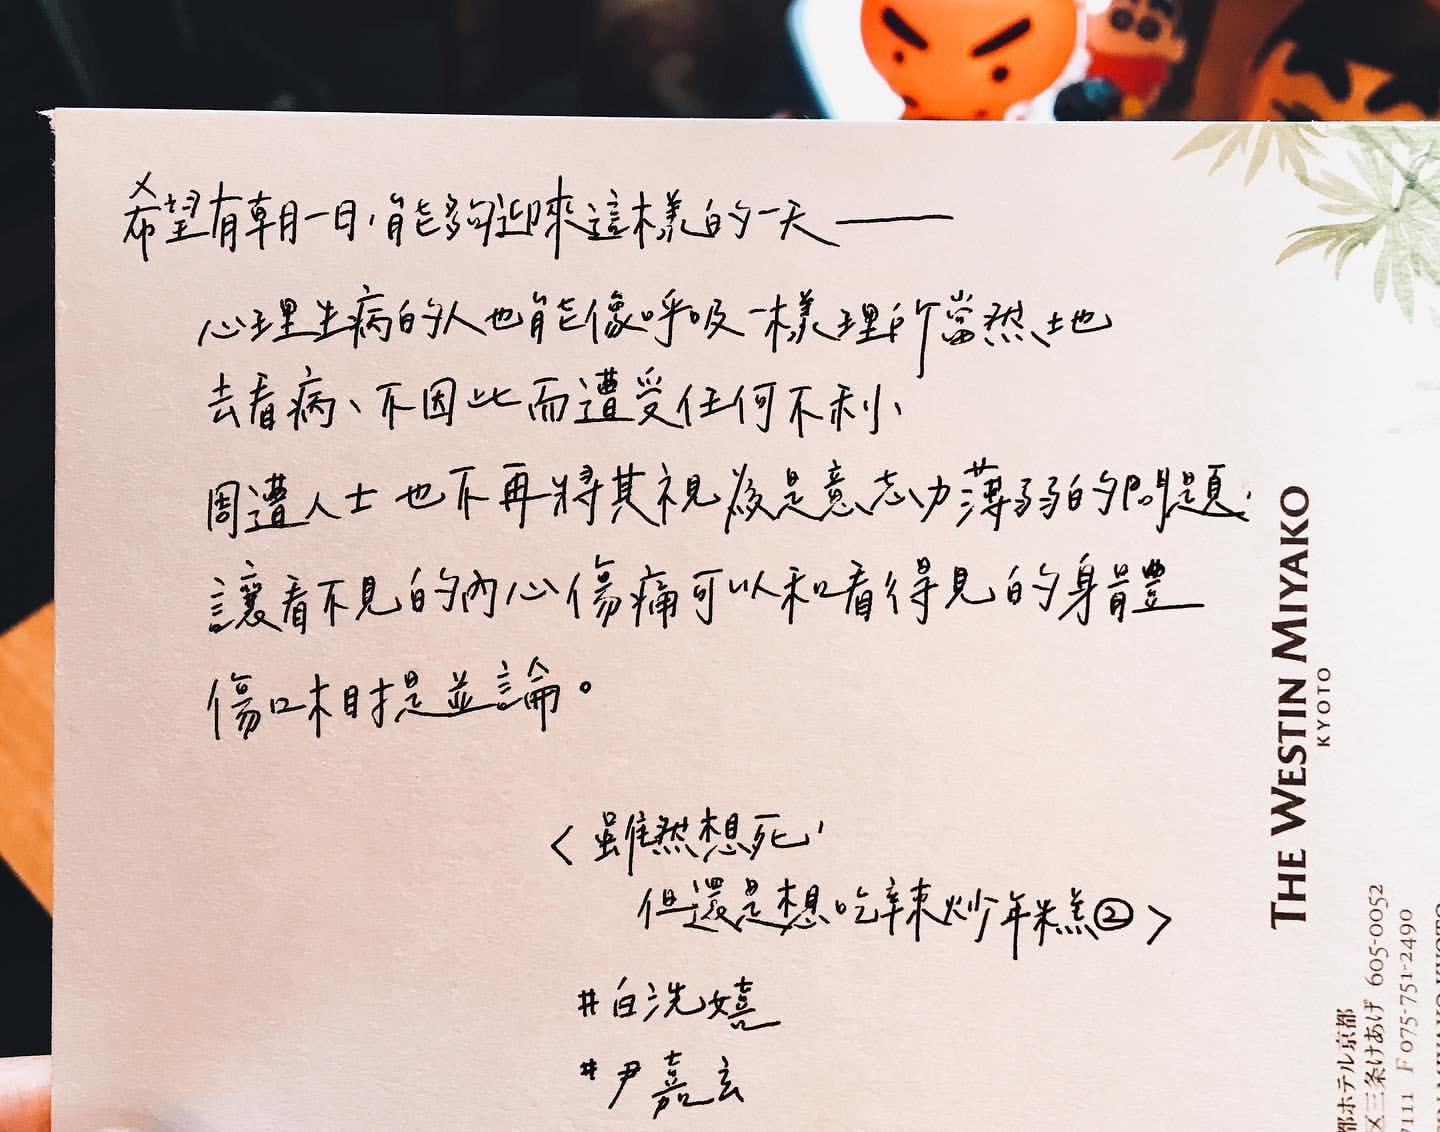 希望有朝一日，能夠迎來這樣的一天——
心理生病的人也能像呼吸一樣理所當然地
去看病、不因此而遭受任何不利、
周遭人士也不再將其視為是意志力薄弱的問題，
讓看不見的內心傷痛可以和看得見的身體
傷口相提並論。
<雖然想死，
但還是想吃辣炒年糕②>
#白洗嬉
#尹嘉玄
THE WESTIN MIYAKO
KYOTO
都ホテル京都
区三条けあげ 605-0052
7111 F 075-751-2490